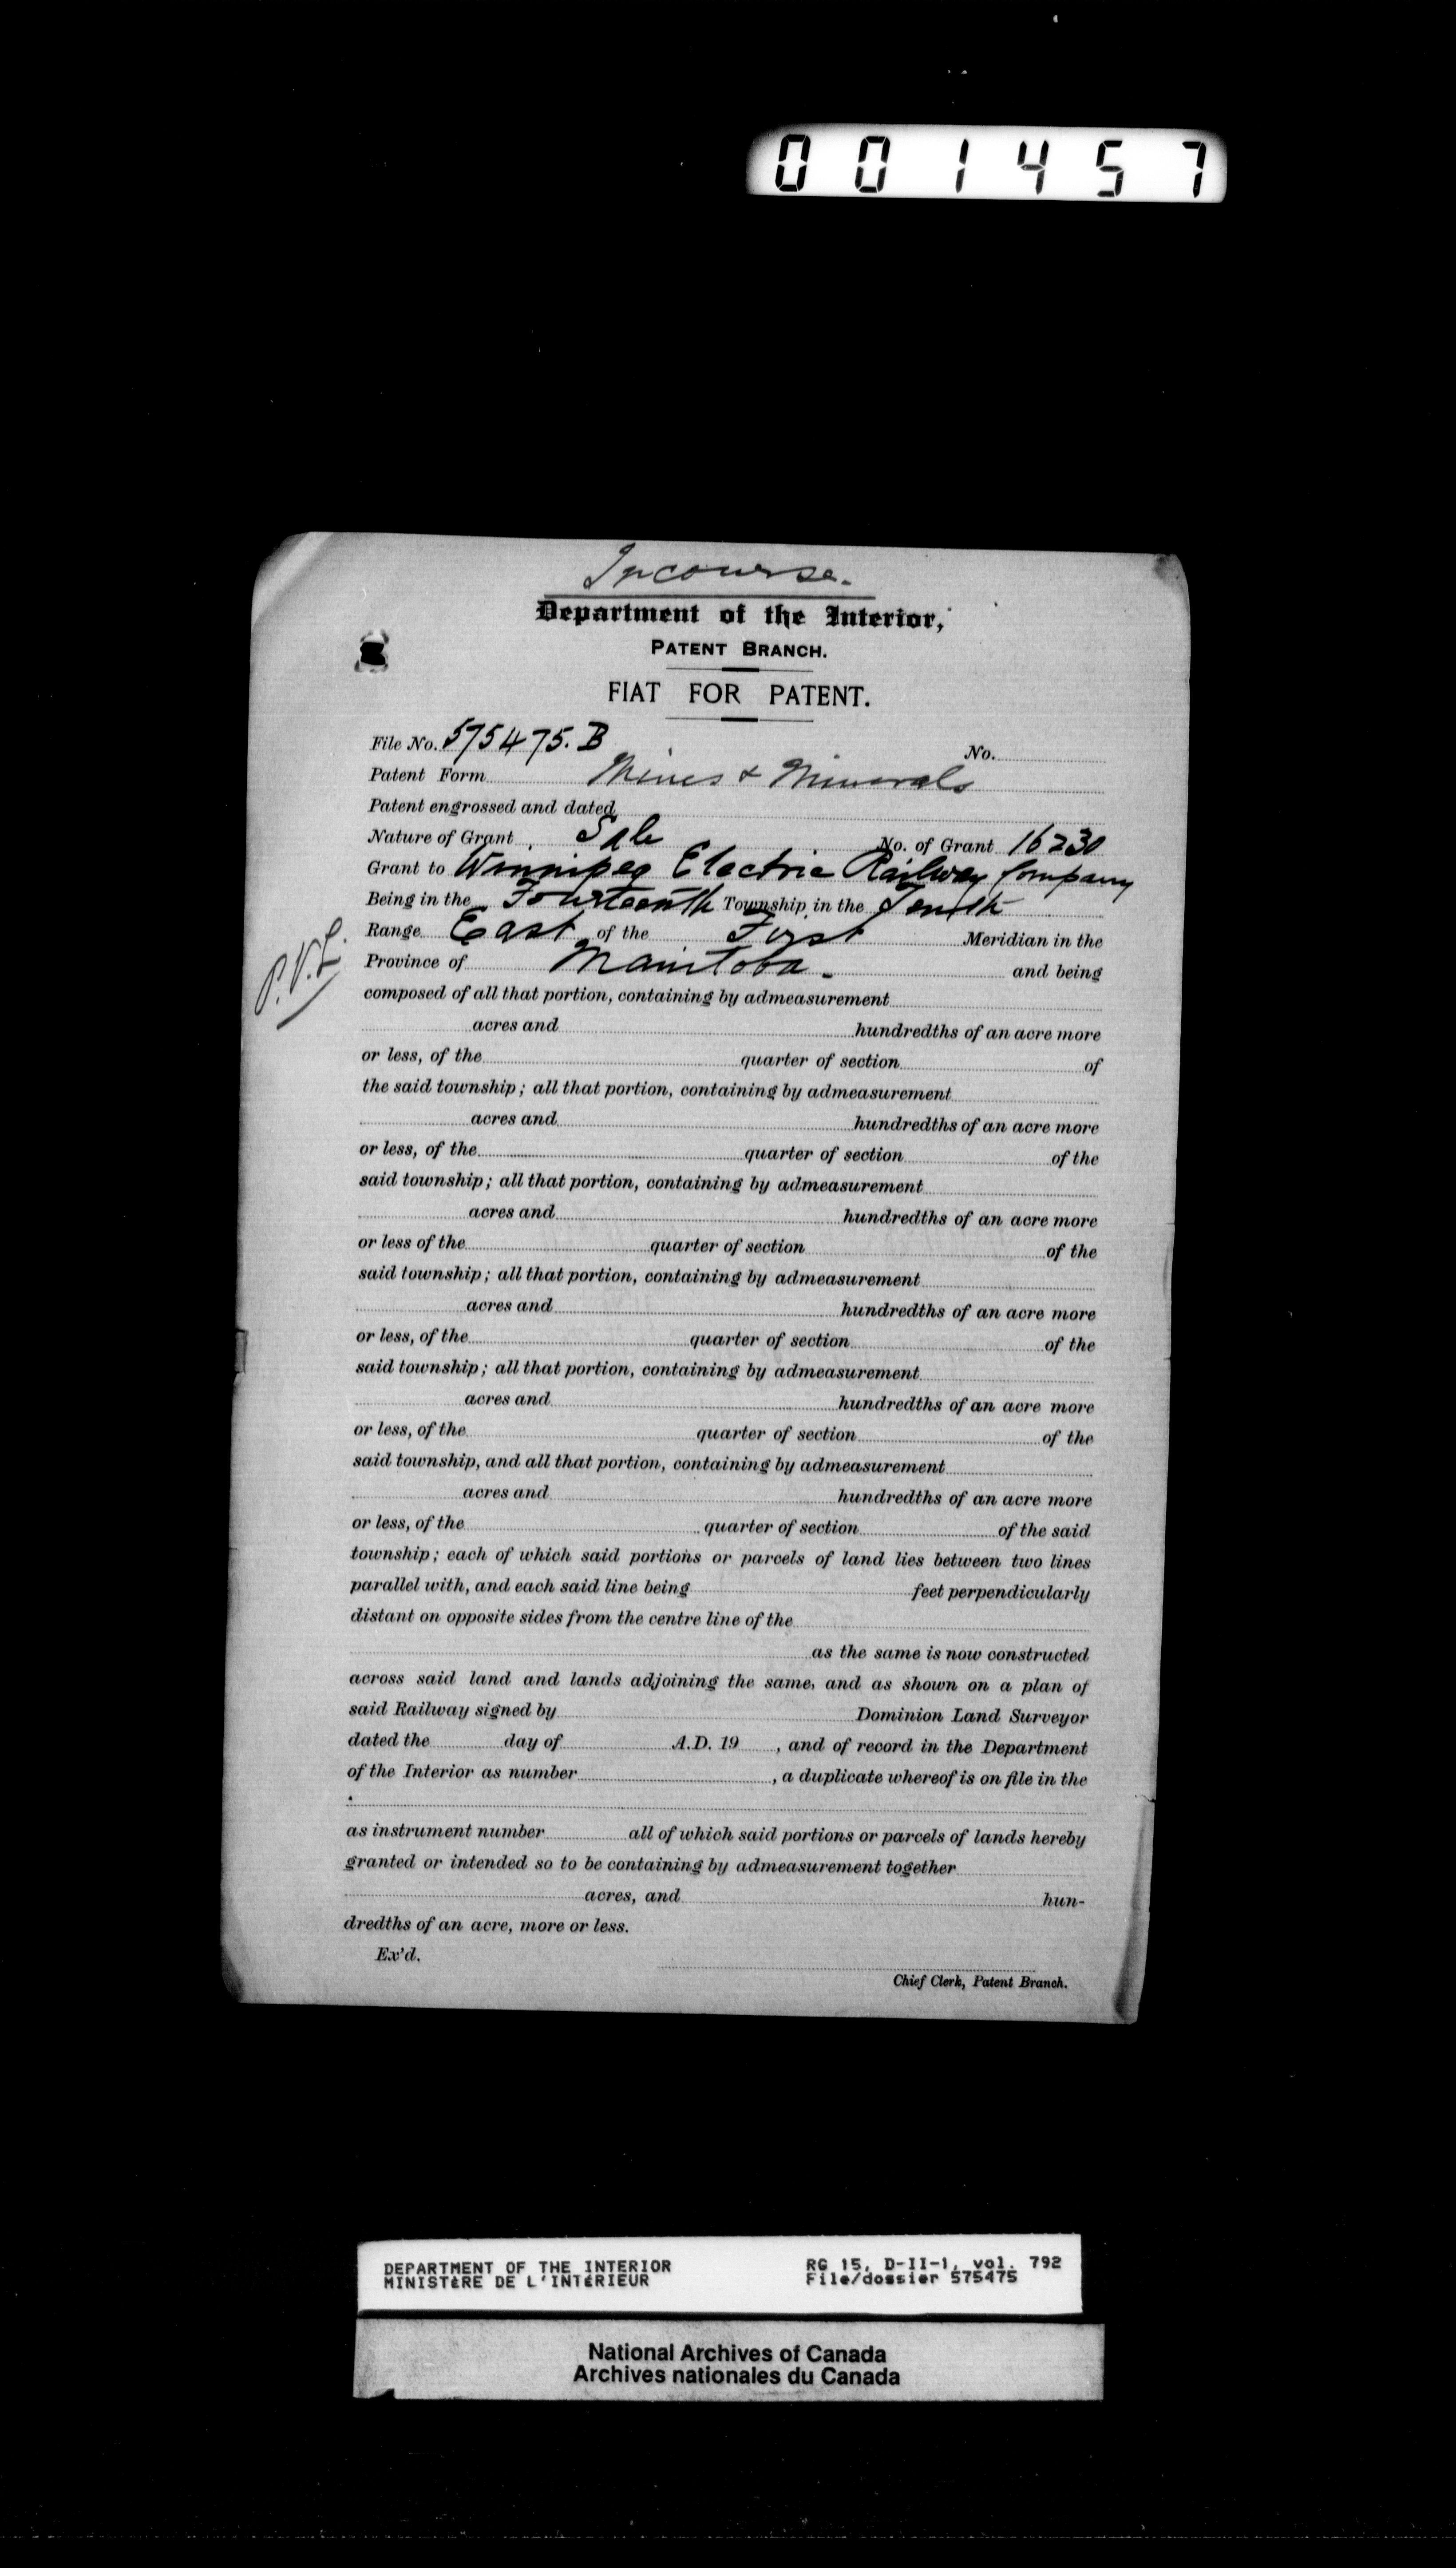 001457
In course.
Department of the Interior,
PATENT BRANCH.
FIAT FOR PATENT.
File No. 575475. B No.
Patent Form Mines & Minerals
Patent engrossed and dated
Nature of Grant Sale No. of Grant 16230
Grant to Winnipeg Electric Railway Company
Being in the Fourteenth Township in the Tenth
Range East of the First Meridian in the
P.V.L.
Province of Manitoba. and being
composed of all that portion, containing by admeasurement
acres and hundredths of an acre more
or less, of the quarter of section of
the said township; all that portion, containing by admeasurement
acres and hundredths of an acre more
or less, of the quarter of section of the
said township; all that portion, containing by admeasurement
acres and hundredths of an acre more
or less of the quarter of section of the
said township; all that portion, containing by admeasurement
acres and hundredths of an acre more
or less, of the quarter of section of the
said township; all that portion, containing by admeasurement
acres and hundredths of an acre more
or less, of the quarter of section of the
said township, and all that portion, containing by admeasurement
acres and hundredths of an acre more
or less, of the quarter of section of the said
township; each of which said portions or parcels of land lies between two lines
parallel with, and each said line being feet perpendicularly
distant on opposite sides from the centre line of the
as the same is now constructed
across said land and lands adjoining the same, and as shown on a plan of
said Railway signed by Dominion Land Surveyor
dated the day of A.D. 19 , and of record in the Department
of the Interior as number , a duplicate whereof is on file in the
as instrument number all of which said portions or parcels of lands hereby
granted or intended so to be containing by admeasurement together
acres, and hun-
dredths of an acre, more or less.
Ex'd.
Chief Clerk, Patent Branch.
DEPARTMENT OF THE INTERIOR RG 15, D-II-1, vol. 792
MINISTÈRE DE L'INTÉRIEUR File/dossier 575475
National Archives of Canada
Archives nationales du Canada